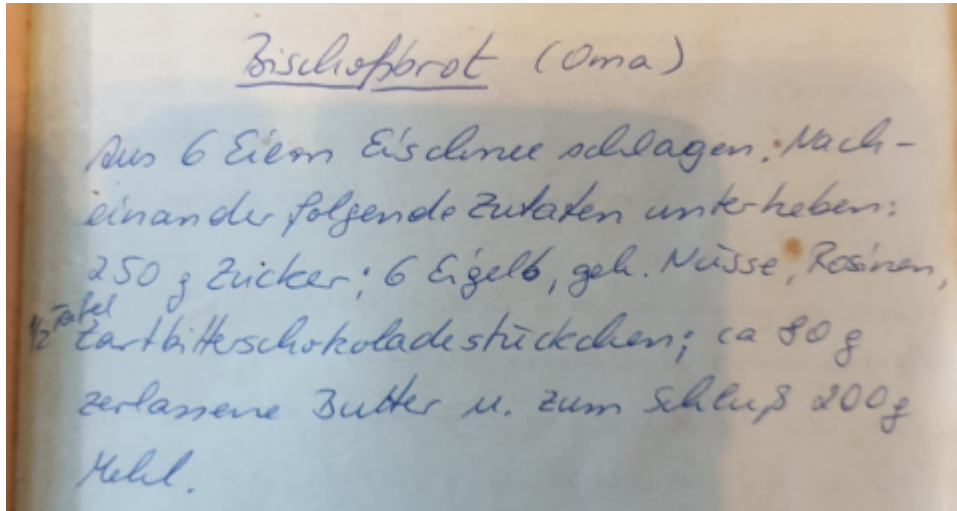 Bischofsbrot (Oma)
Aus 6 Eiern Eischnee schlagen. Nach-
einander folgende Zutaten unterheben:
250 g Zucker; 6 Eigelb, geh. Nüsse, Rosinen,
1/2 Tafel Zartbitterschokoladestückchen; ca 80 g
zerlassene Butter u. zum Schluß 200g
Mehl.